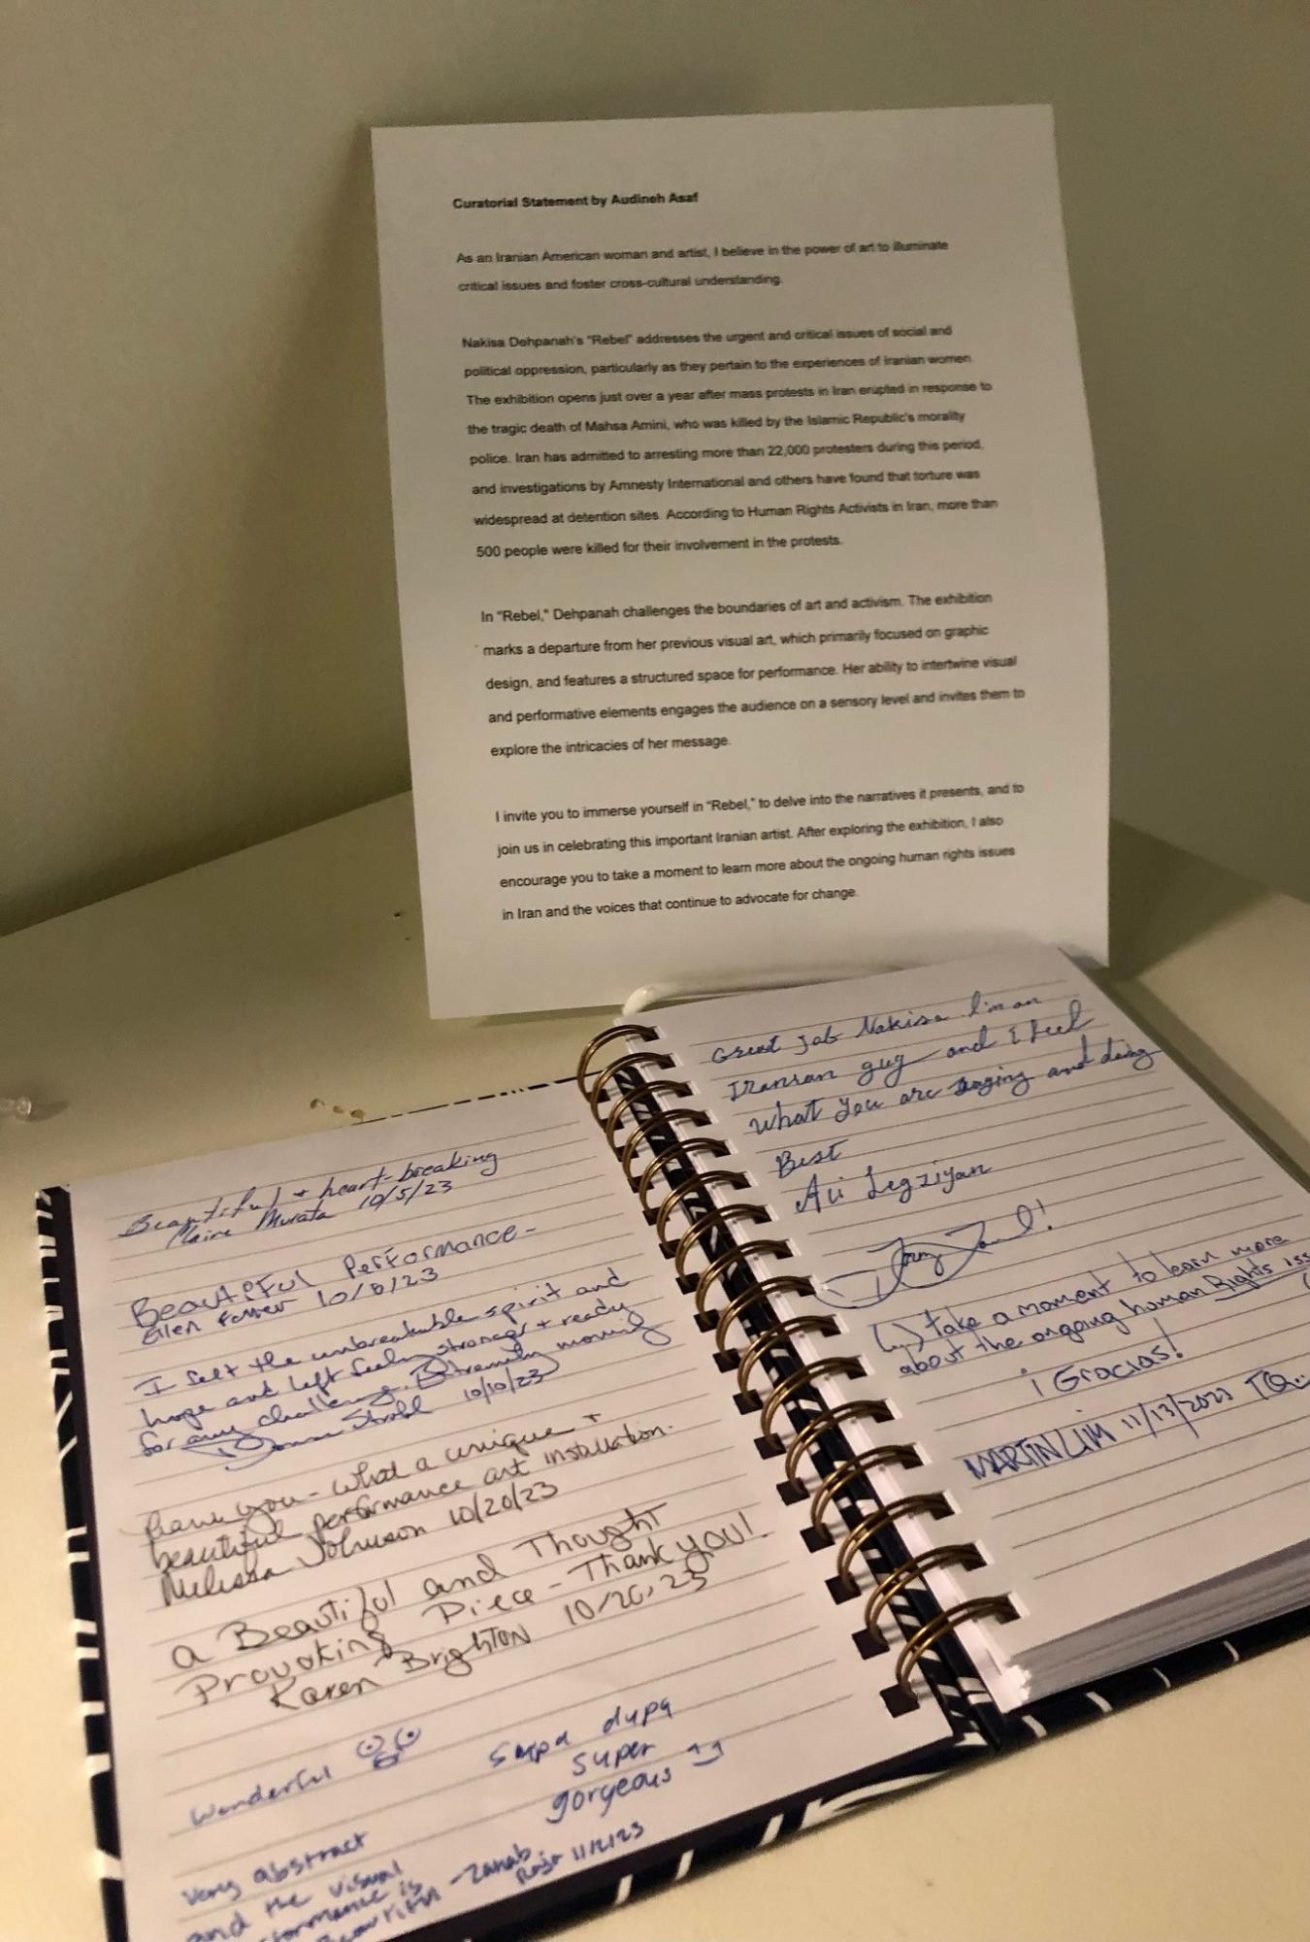 Curatorial Statement by Audineh Asaf
As an Iranian American woman and artist, I believe in the power of art to illuminate
critical issues and foster cross-cultural understanding.
Nakisa Dehpanah's "Rebel" addresses the urgent and critical issues of social and
political oppression, particularly as they pertain to the experiences of Iranian women.
The exhibition opens just over a year after mass protests in Iran erupted in response to
the tragic death of Mahsa Amini, who was killed by the Islamic Republic's morality
police. Iran has admitted to arresting more than 22,000 protesters during this period,
and investigations by Amnesty International and others have found that torture was
widespread at detention sites. According to Human Rights Activists in Iran, more than
500 people were killed for their involvement in the protests.
In "Rebel," Dehpanah challenges the boundaries of art and activism. The exhibition
marks a departure from her previous visual art, which primarily focused on graphic
design, and features a structured space for performance. Her ability to intertwine visual
and performative elements engages the audience on a sensory level and invites them to
explore the intricacies of her message.
I invite you to immerse yourself in "Rebel," to delve into the narratives it presents, and to
join us in celebrating this important Iranian artist. After exploring the exhibition, I also
encourage you to take a moment to learn more about the ongoing human rights issues
in Iran and the voices that continue to advocate for change.
Beautiful + heart-breaking
Claire Murata 10/5/23
Beautiful Performance -
Ellen 10/8/23
I felt the unbreakable spirit and
hope and left feeling stronger + ready
for any challenge. Extremely moving
Donna Strohl 10/10/23
Thank you - What a unique +
beautiful performance art installation.
Melissa Johnson 10/20/23
a Beautiful and Thought
Provoking Piece - Thank you!
Karen Brighton 10/20/23
Wonderful
Supa dupa
super
gorgeous
Very abstract
and the visual
is
- Zainab
11/2/23
Great job Nakisa I'm an
Iranian guy and I feel
what you are saying and doing
Best
Ali Legziyan
(...) take a moment to learn more
about the ongoing human Rights iss
¡Gracias!
MARTIN LIM 11/13/2023